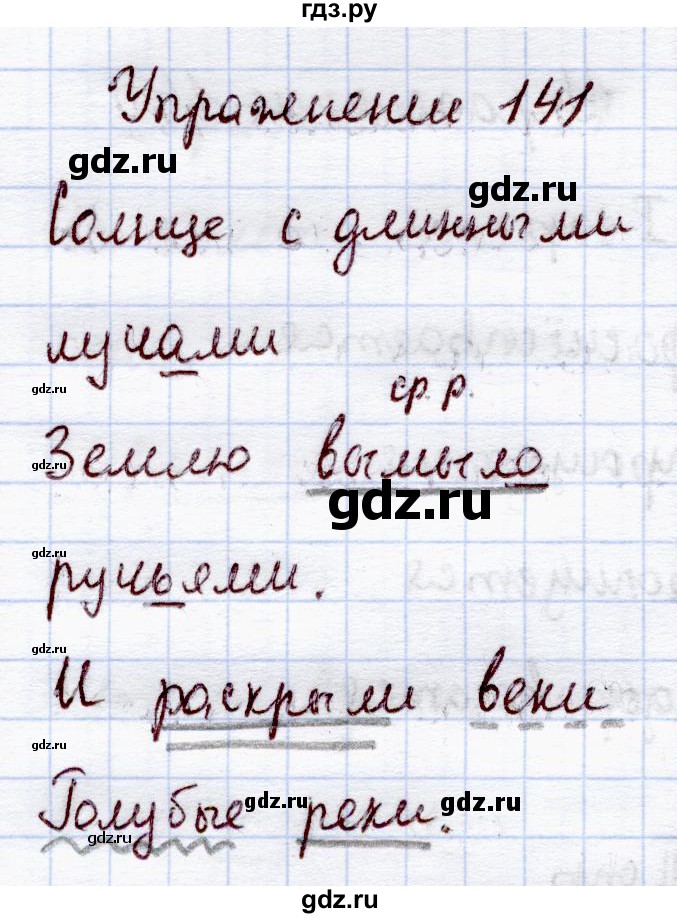 гдз.ру
Упражнение 141
gdz.ru gdz.ru
Солнце с длинными
лучами
gdz.ru
ср. р.
Землю вымыло
gdz.ru
gdz.ru
gdz.ru
ручьями.
gdz.ru
И раскрыли веки
gdz.ru
Голубые реки.
gdz.ru gdz.ru gdz.ru
gdz.ru